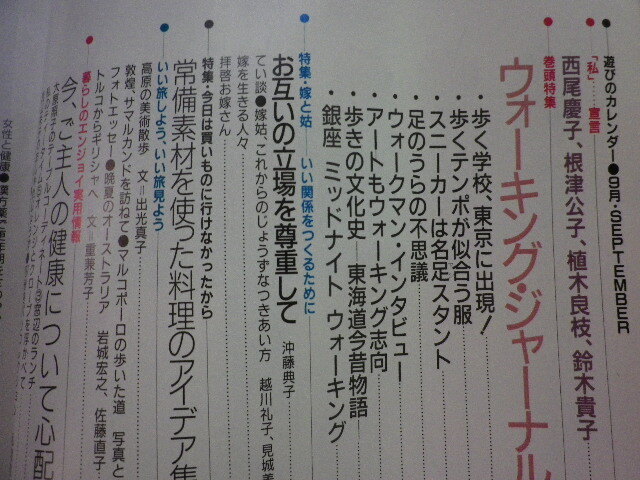 遊びのカレンダー●9月・SEPTEMBER
「私」…宣言
西尾慶子、根津公子、植木良枝、鈴木貴子
巻頭特集
ウォーキング・ジャーナル
・歩く学校、東京に出現!
・歩くテンポが似合う服
・スニーカーは名足スタント
・足のうらの不思議
・ウォークマン・インタビュー
・アートもウォーキング志向
・歩きの文化史 東海道今昔物語
・銀座 ミッドナイト ウォーキング
特集・嫁と姑 いい関係をつくるために
お互いの立場を尊重して 沖藤典子
てい談●嫁姑、これからのじょうずなつきあい方 越川礼子、見城美
嫁を生きる人々
拝啓お嫁さん
特集・今日は買いものに行けなかったから
常備素材を使った料理のアイデア集
いい旅しよう、いい旅見よう
高原の美術散歩 文=出光真子
敦煌、サマルカンドを訪ねて●マルコポーロの歩いた道 写真と
フォトエッセー●晩夏のオーストラリア 岩城宏之、佐藤直子
トルコからギリシャへ 文=重兼芳子
暮らしのエンジョイ実用情報
今、ご主人の健康について心配
女性と健康●漢方薬